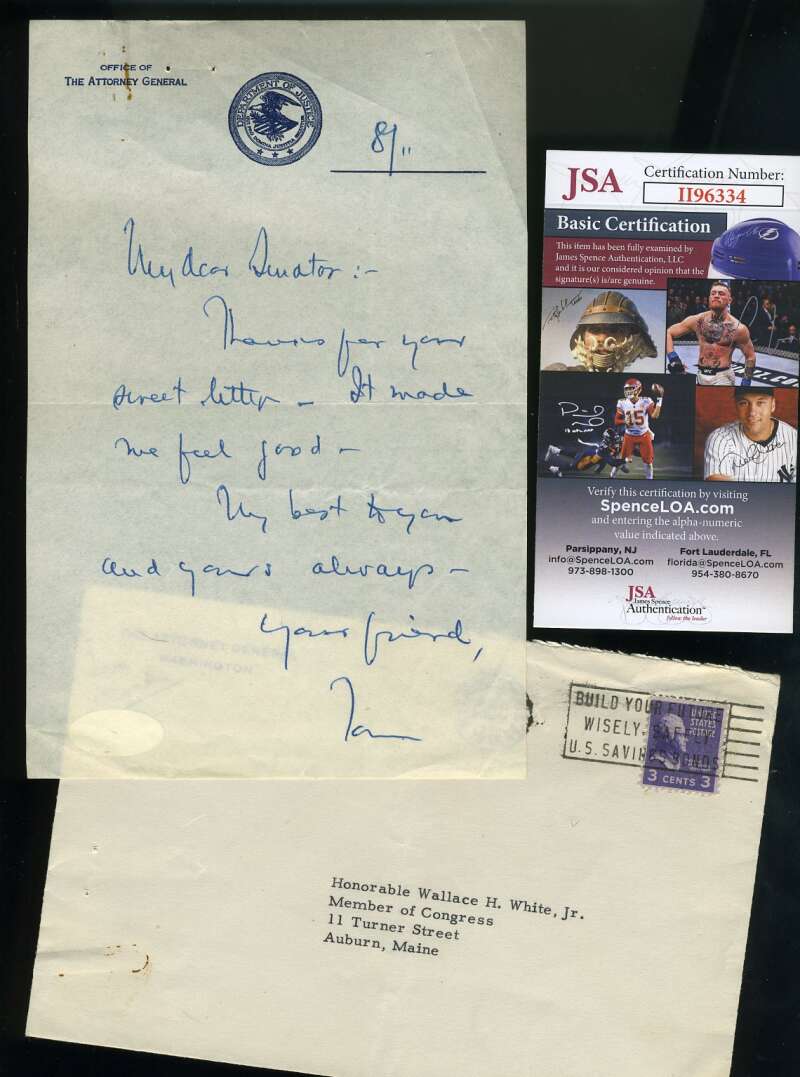 OFFICE OF
THE ATTORNEY GENERAL
DEPARTMENT OF JUSTICE
8/11
My dear Senator :-
Thanks for your
sweet letter - It made
me feel good -
My best to you
and yours always -
Your friend,
Tom
THE ATTORNEY GENERAL
WASHINGTON
JSA
Certification Number:
II96334
Basic Certification
This item has been fully examined by
James Spence Authentication, LLC
and it is our considered opinion that the
signature(s) is/are genuine.
15
Verify this certification by visiting
SpenceLOA.com
and entering the alpha-numeric
value indicated above.
Parsippany, NJ
info@SpenceLOA.com
973-898-1300
Fort Lauderdale, FL
florida@SpenceLOA.com
954-380-8670
JSA
James Spence
Authentication
follow the leader
BUILD YOUR FUTURE
WISELY, SAFELY
U.S. SAVINGS BONDS
UNITED
STATES
POSTAGE
3 CENTS 3
Honorable Wallace H. White, Jr.
Member of Congress
11 Turner Street
Auburn, Maine